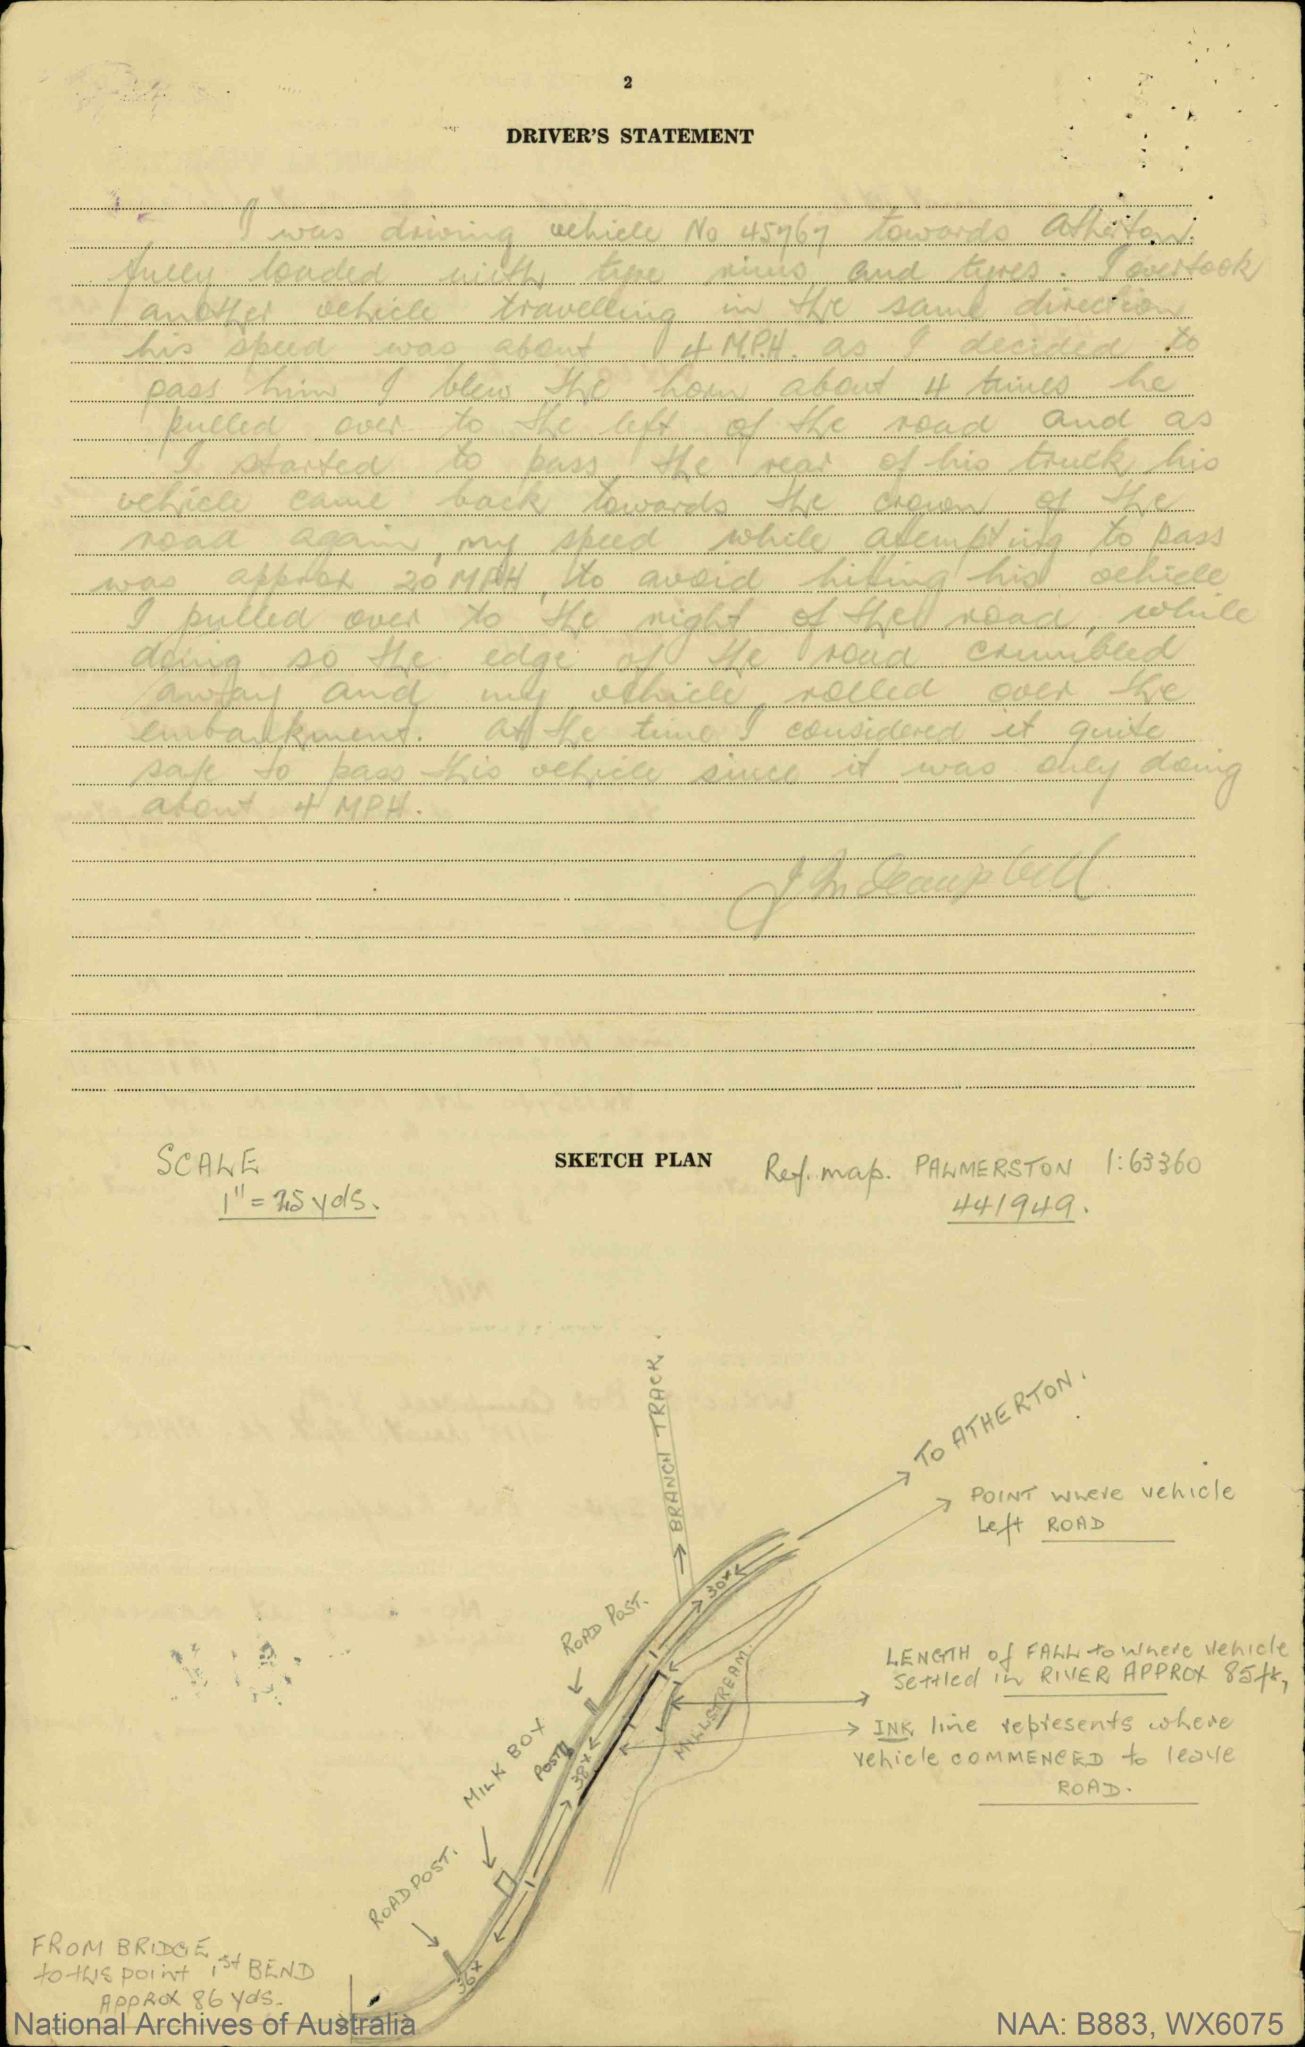 2
DRIVER'S STATEMENT
I was driving vehicle No 45767 towards Atherton.
fully loaded with type rims and tyres. I overtook
another vehicle travelling in the same direction
his speed was about 4 M.P.H. as I decided to
pass him I blew the horn about 4 times he
pulled over to the left of the road and as
I started to pass the rear of his truck his
vehicle came back towards the crown of the
road again, my speed while atempting to pass
was approx 20 MPH, to avoid hitting his vehicle
I pulled over to the right of the road, while
doing so the edge of the road crumbled
away and my vehicle rolled over the
embankment. At the time I considered it quite
safe to pass this vehicle since it was only doing
about 4 MPH.
Campbell
SCALE
1" = 25 yds.
SKETCH PLAN
Ref. map. PALMERSTON 1:63360
441949.
BRANCH TRACK.
TO ATHERTON.
POINT where vehicle
Left ROAD
30x
ROAD POST.
LENGTH of FALL to where vehicle
settled in RIVER APPROX 85ft,
MILLSTREAM.
INK line represents where
vehicle COMMENCED to leave
ROAD.
MILK BOX
POST
38x
ROAD POST.
36x
FROM BRIDGE
to this point 1st BEND
APPROX 86 yds.
National Archives of Australia
NAA: B883, WX6075